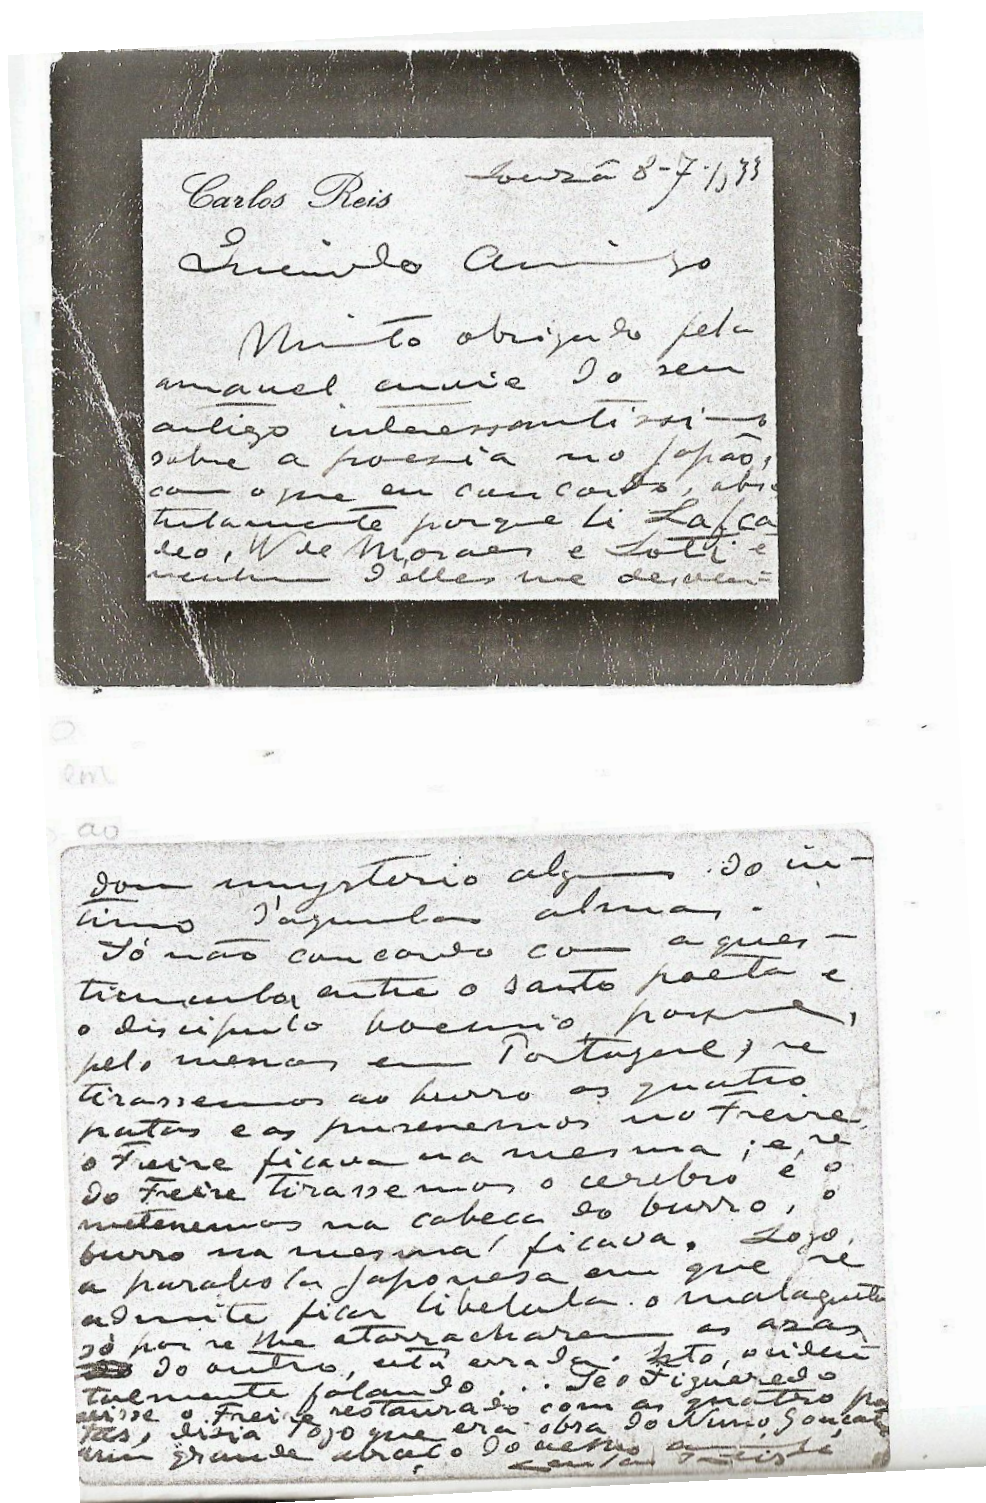 Carlos Reis
Louzã 8-7-1933
Querido Amigo
Muito obrigado pela
amavel envie do seu
antigo interessantissimo
sobre a poesia no Japão,
com o que eu concordo, abso
lutamente porque li Lafca
deo, W de Moraes e Loti e
nenhum d'elles me desven=
dou mysterio algum do in-
timo d'aquellas almas.
Só não concordo com a ques-
tiuncula entre o santo poeta e
o discipulo boemio, porque,
pelo menos em Portugal, se
tirassemos ao burro as quatro
patas e as puzenemos no Freire,
o Freire ficava na mesma; e, se
do Freire tirassemos o cerebro e o
metenemos na cabeça do burro, o
burro na mesma ficava. Logo,
a parabola Japonesa em que se
admite ficar libelula o malagueta
só por se lhe atarracharem as azas
do outro, está errada. Isto, ociden
talmente falando... Se o Figueredo
visse o Freire restaurado com as quatro pa
tas, disia logo que era obra do Nuno Gonçalves
um grande abraço do
Carlos Reis
O
em
ao